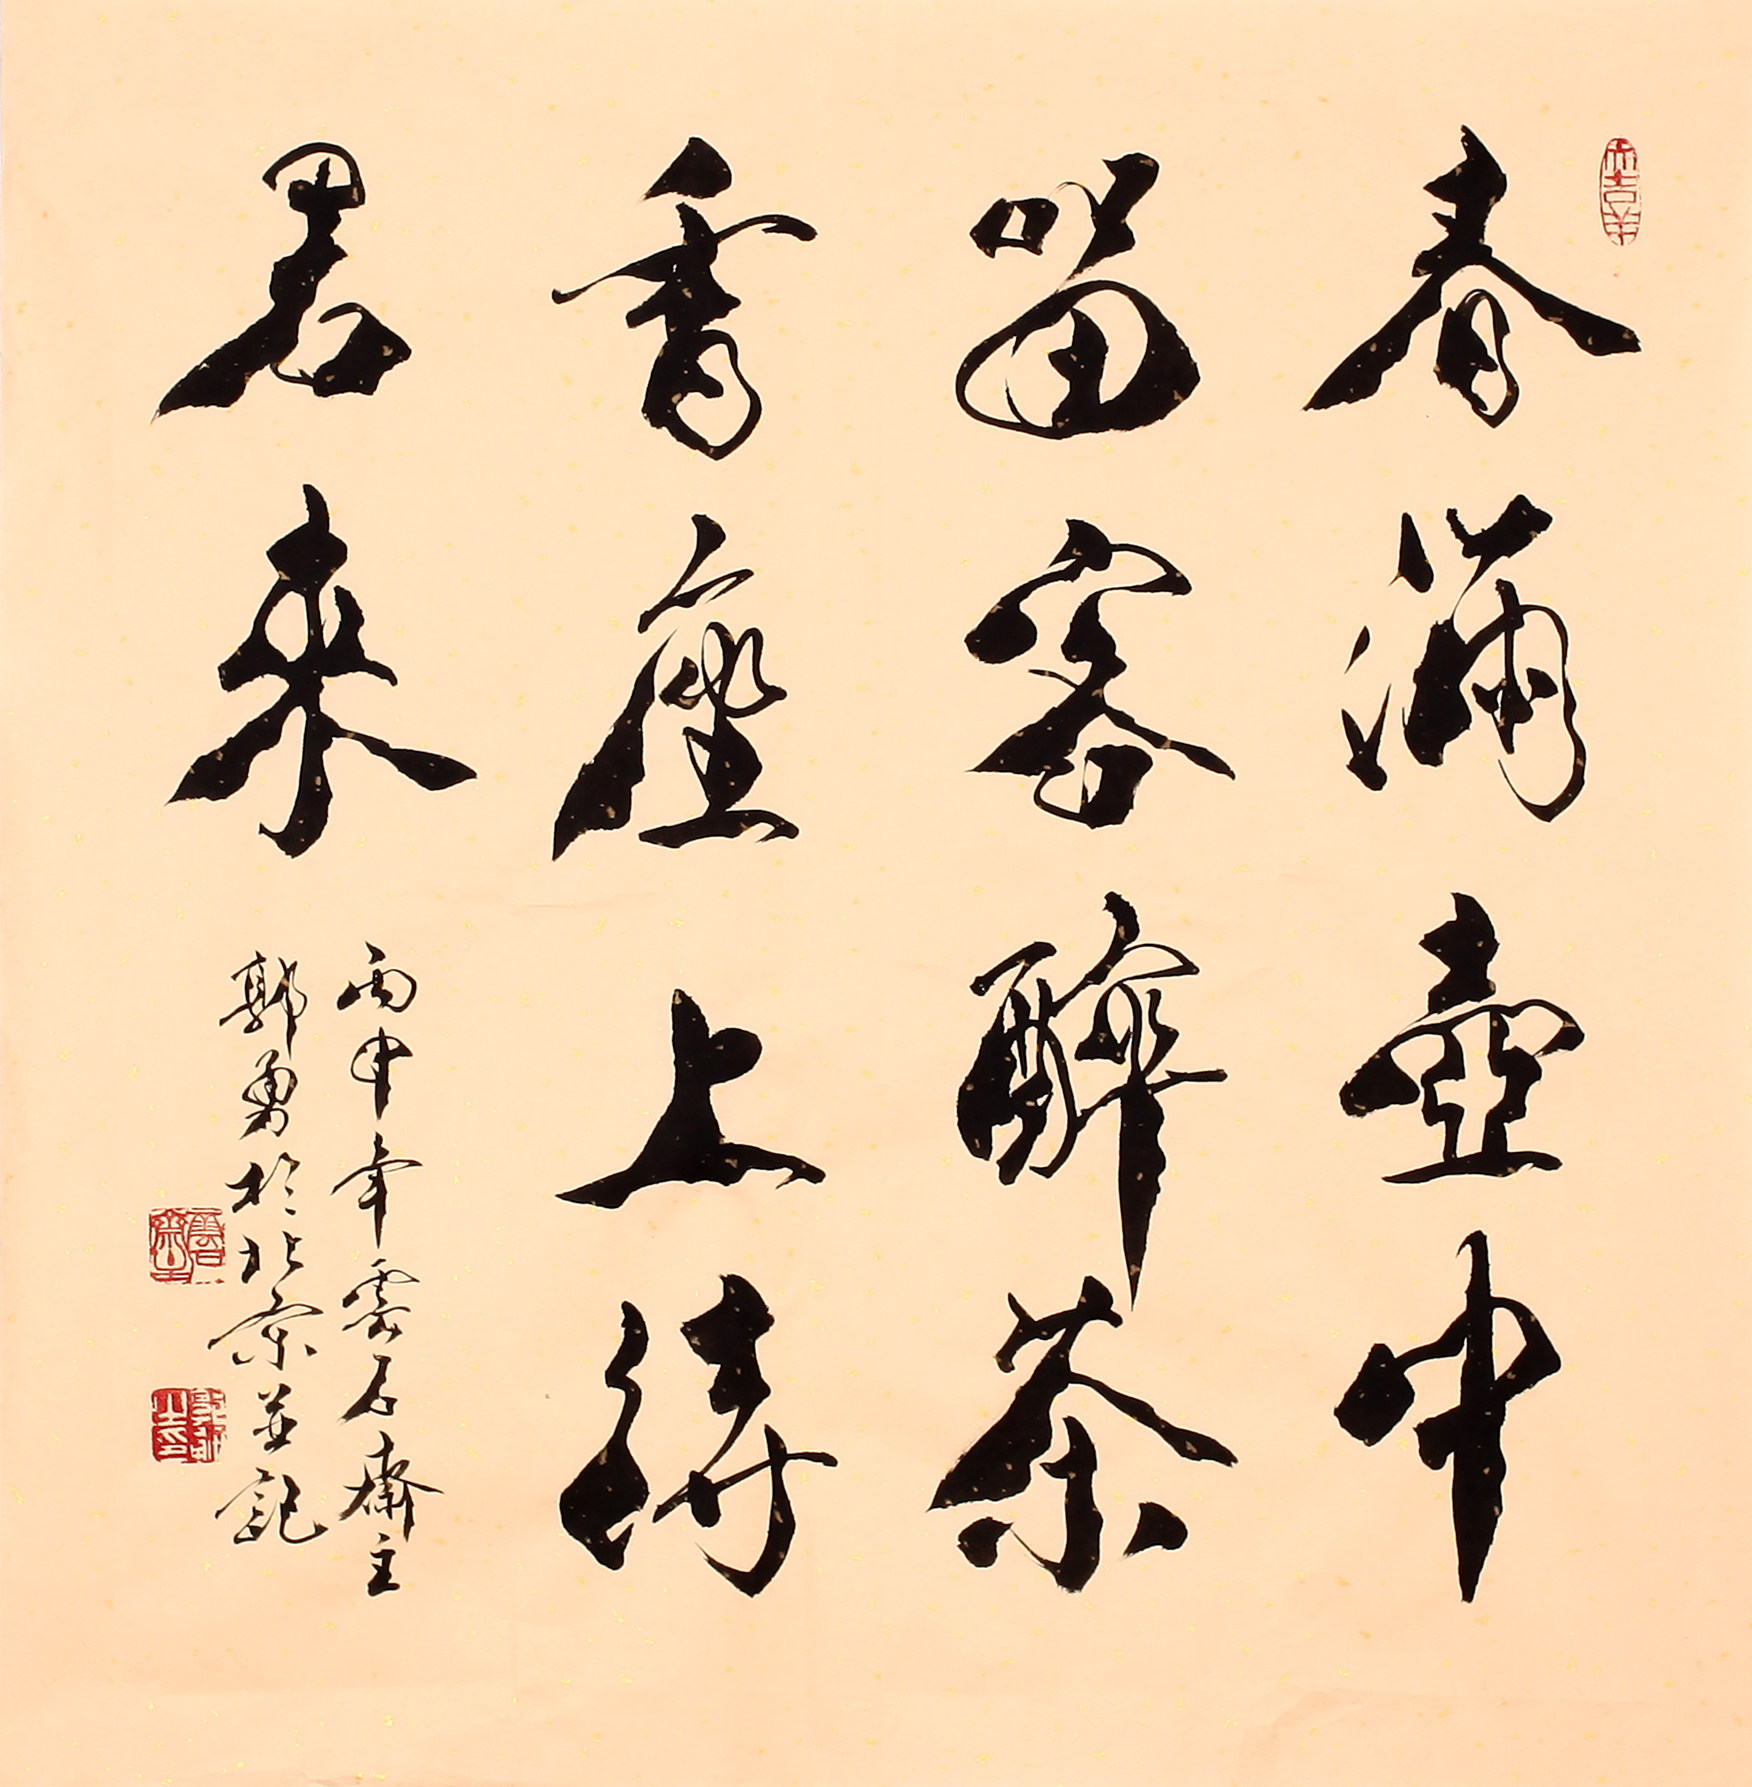 春滿壺中
留客醉茶
香座上待
君来
丙申年雲石齋主
郭勇於北京並記
大吉羊